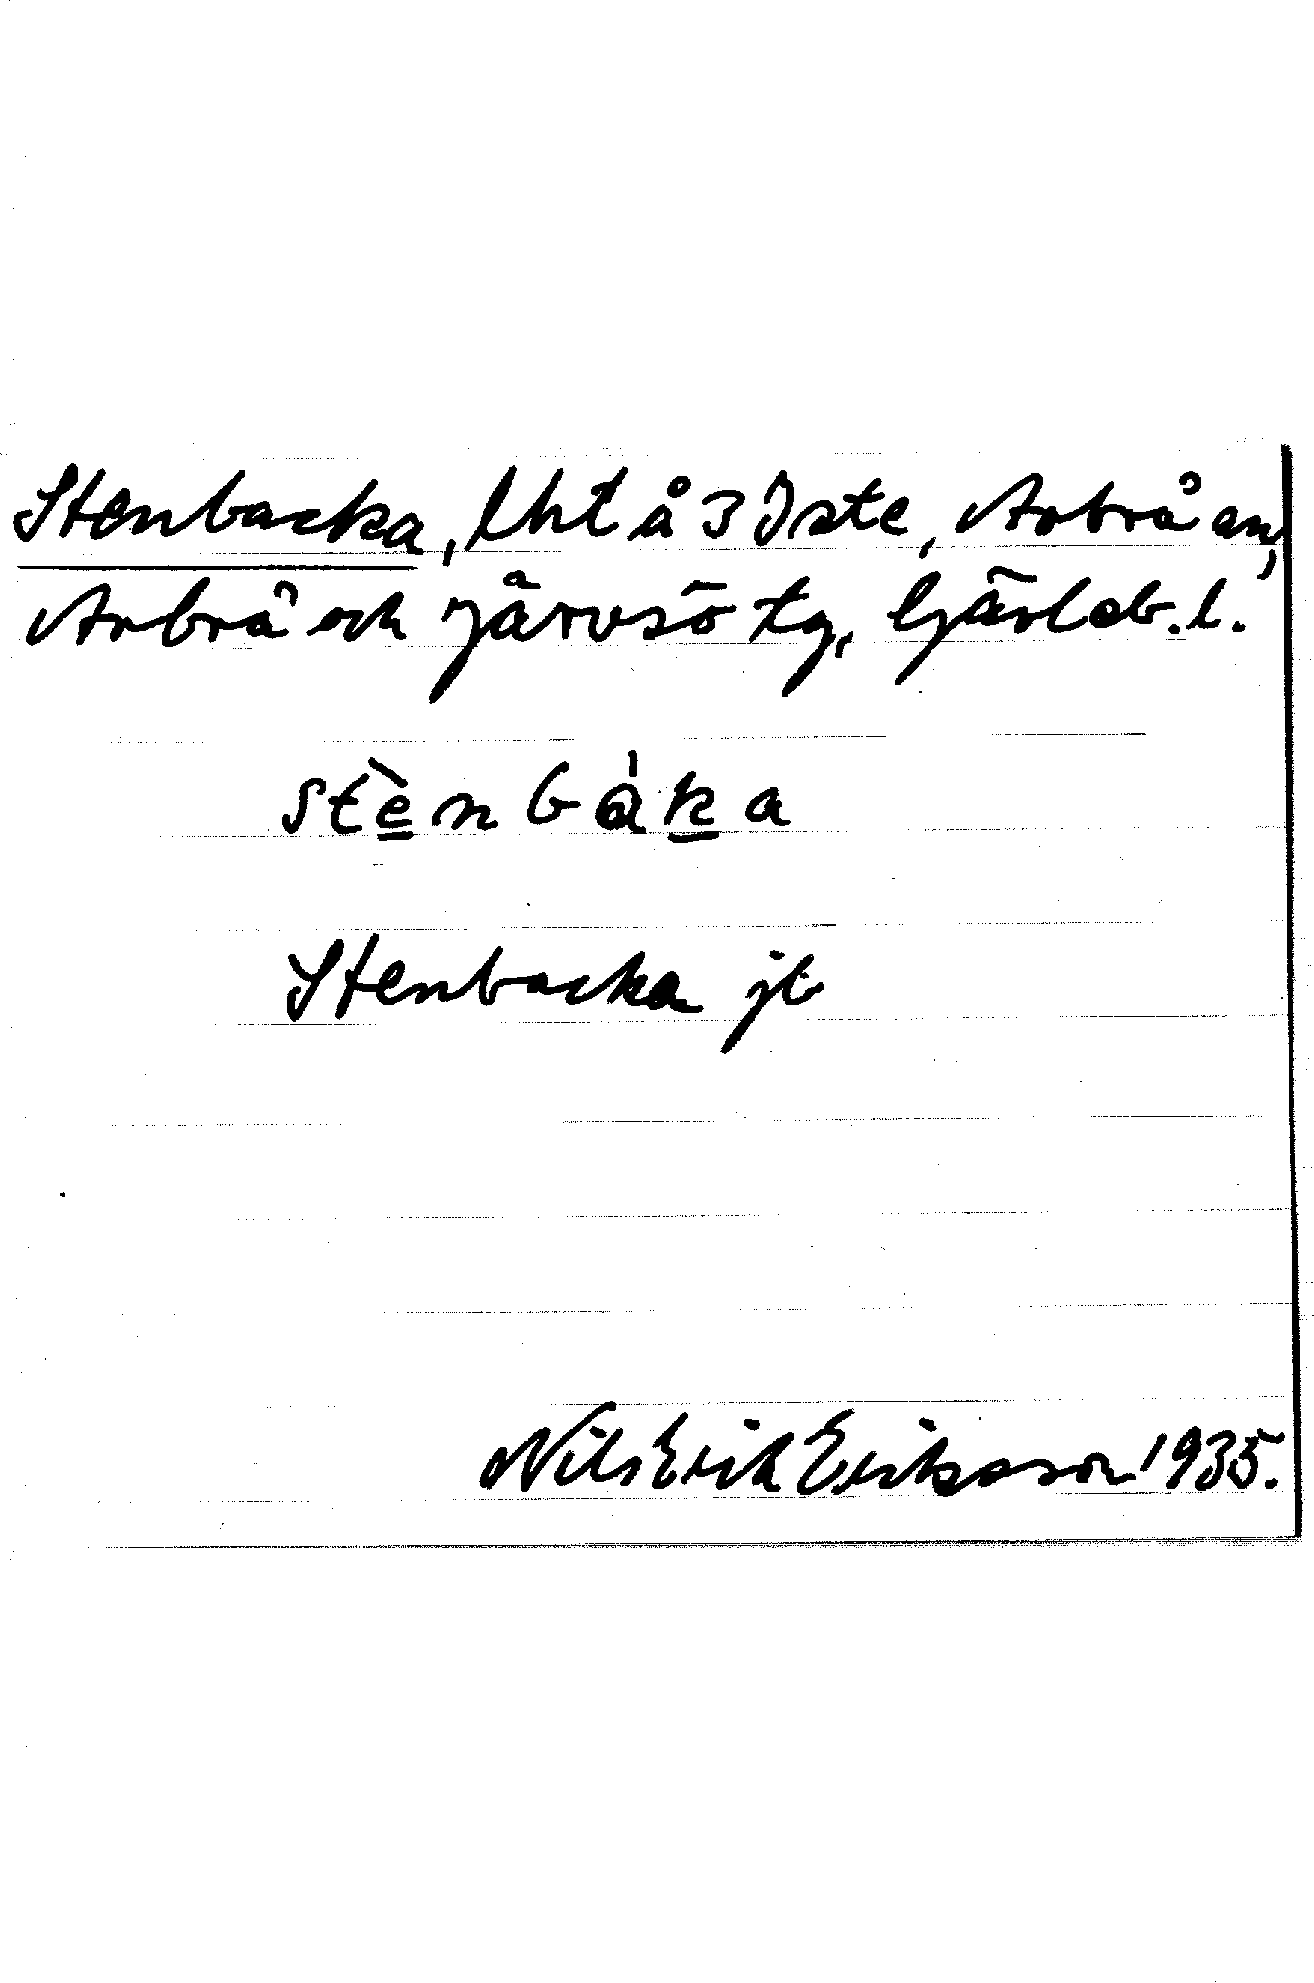 Stenbacka, lht å 3 Iste, Arbrå sn,
Arbrå och Järvsö tg, Gävleb. l.
stènbàka
Stenbacka jb
Nils Erik Eriksson 1935.